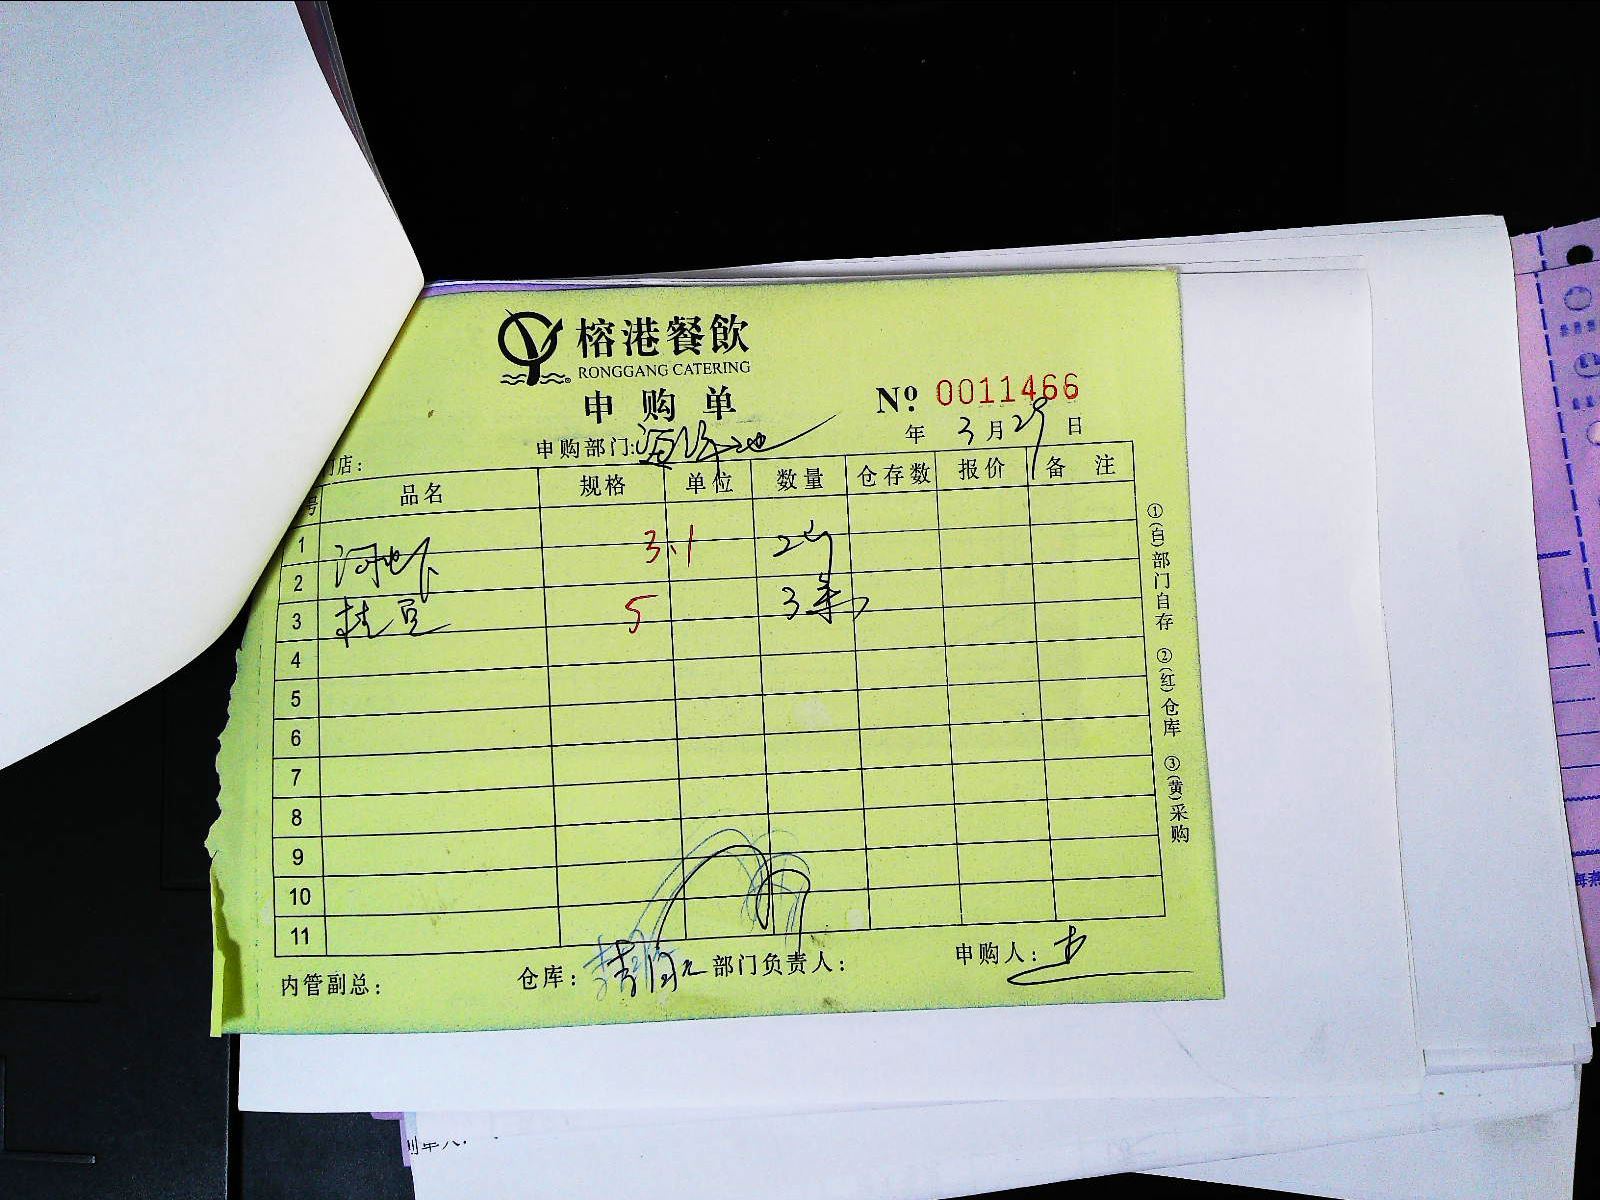 榕港餐飲
RONGGANG CATERING
申购单
No. 0011466
申购部门:海鲜池
年 3月29日
店:
号 品名 规格 单位 数量 仓存数 报价 备注
1 河虾 3.1 2斤
2
3 桂豆 5 3条
4
5
6
7
8
9
10
11
内管副总: 仓库: 部门负责人: 申购人:
①(白)部门自存 ②(红)仓库 ③(黄)采购